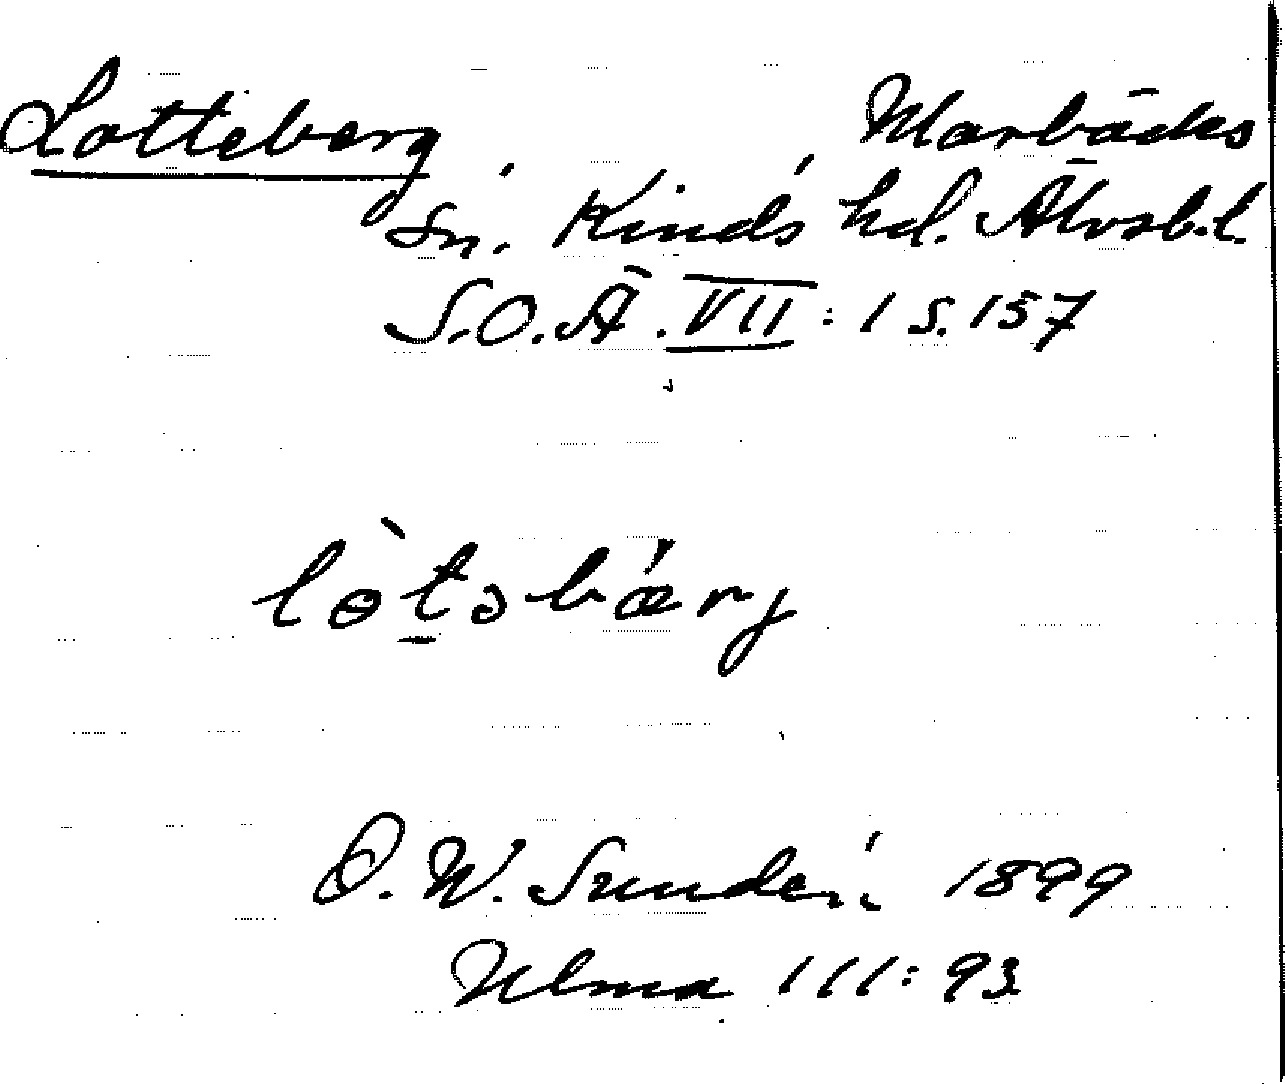 Lotteberg, Marbäcks
Sn. Kinds hd. Älvsb.l.
S.O.Ä. VII: 1 s. 157
lò̱təbǽrj
O. W. Sundén 1899
Ulma 111: 93